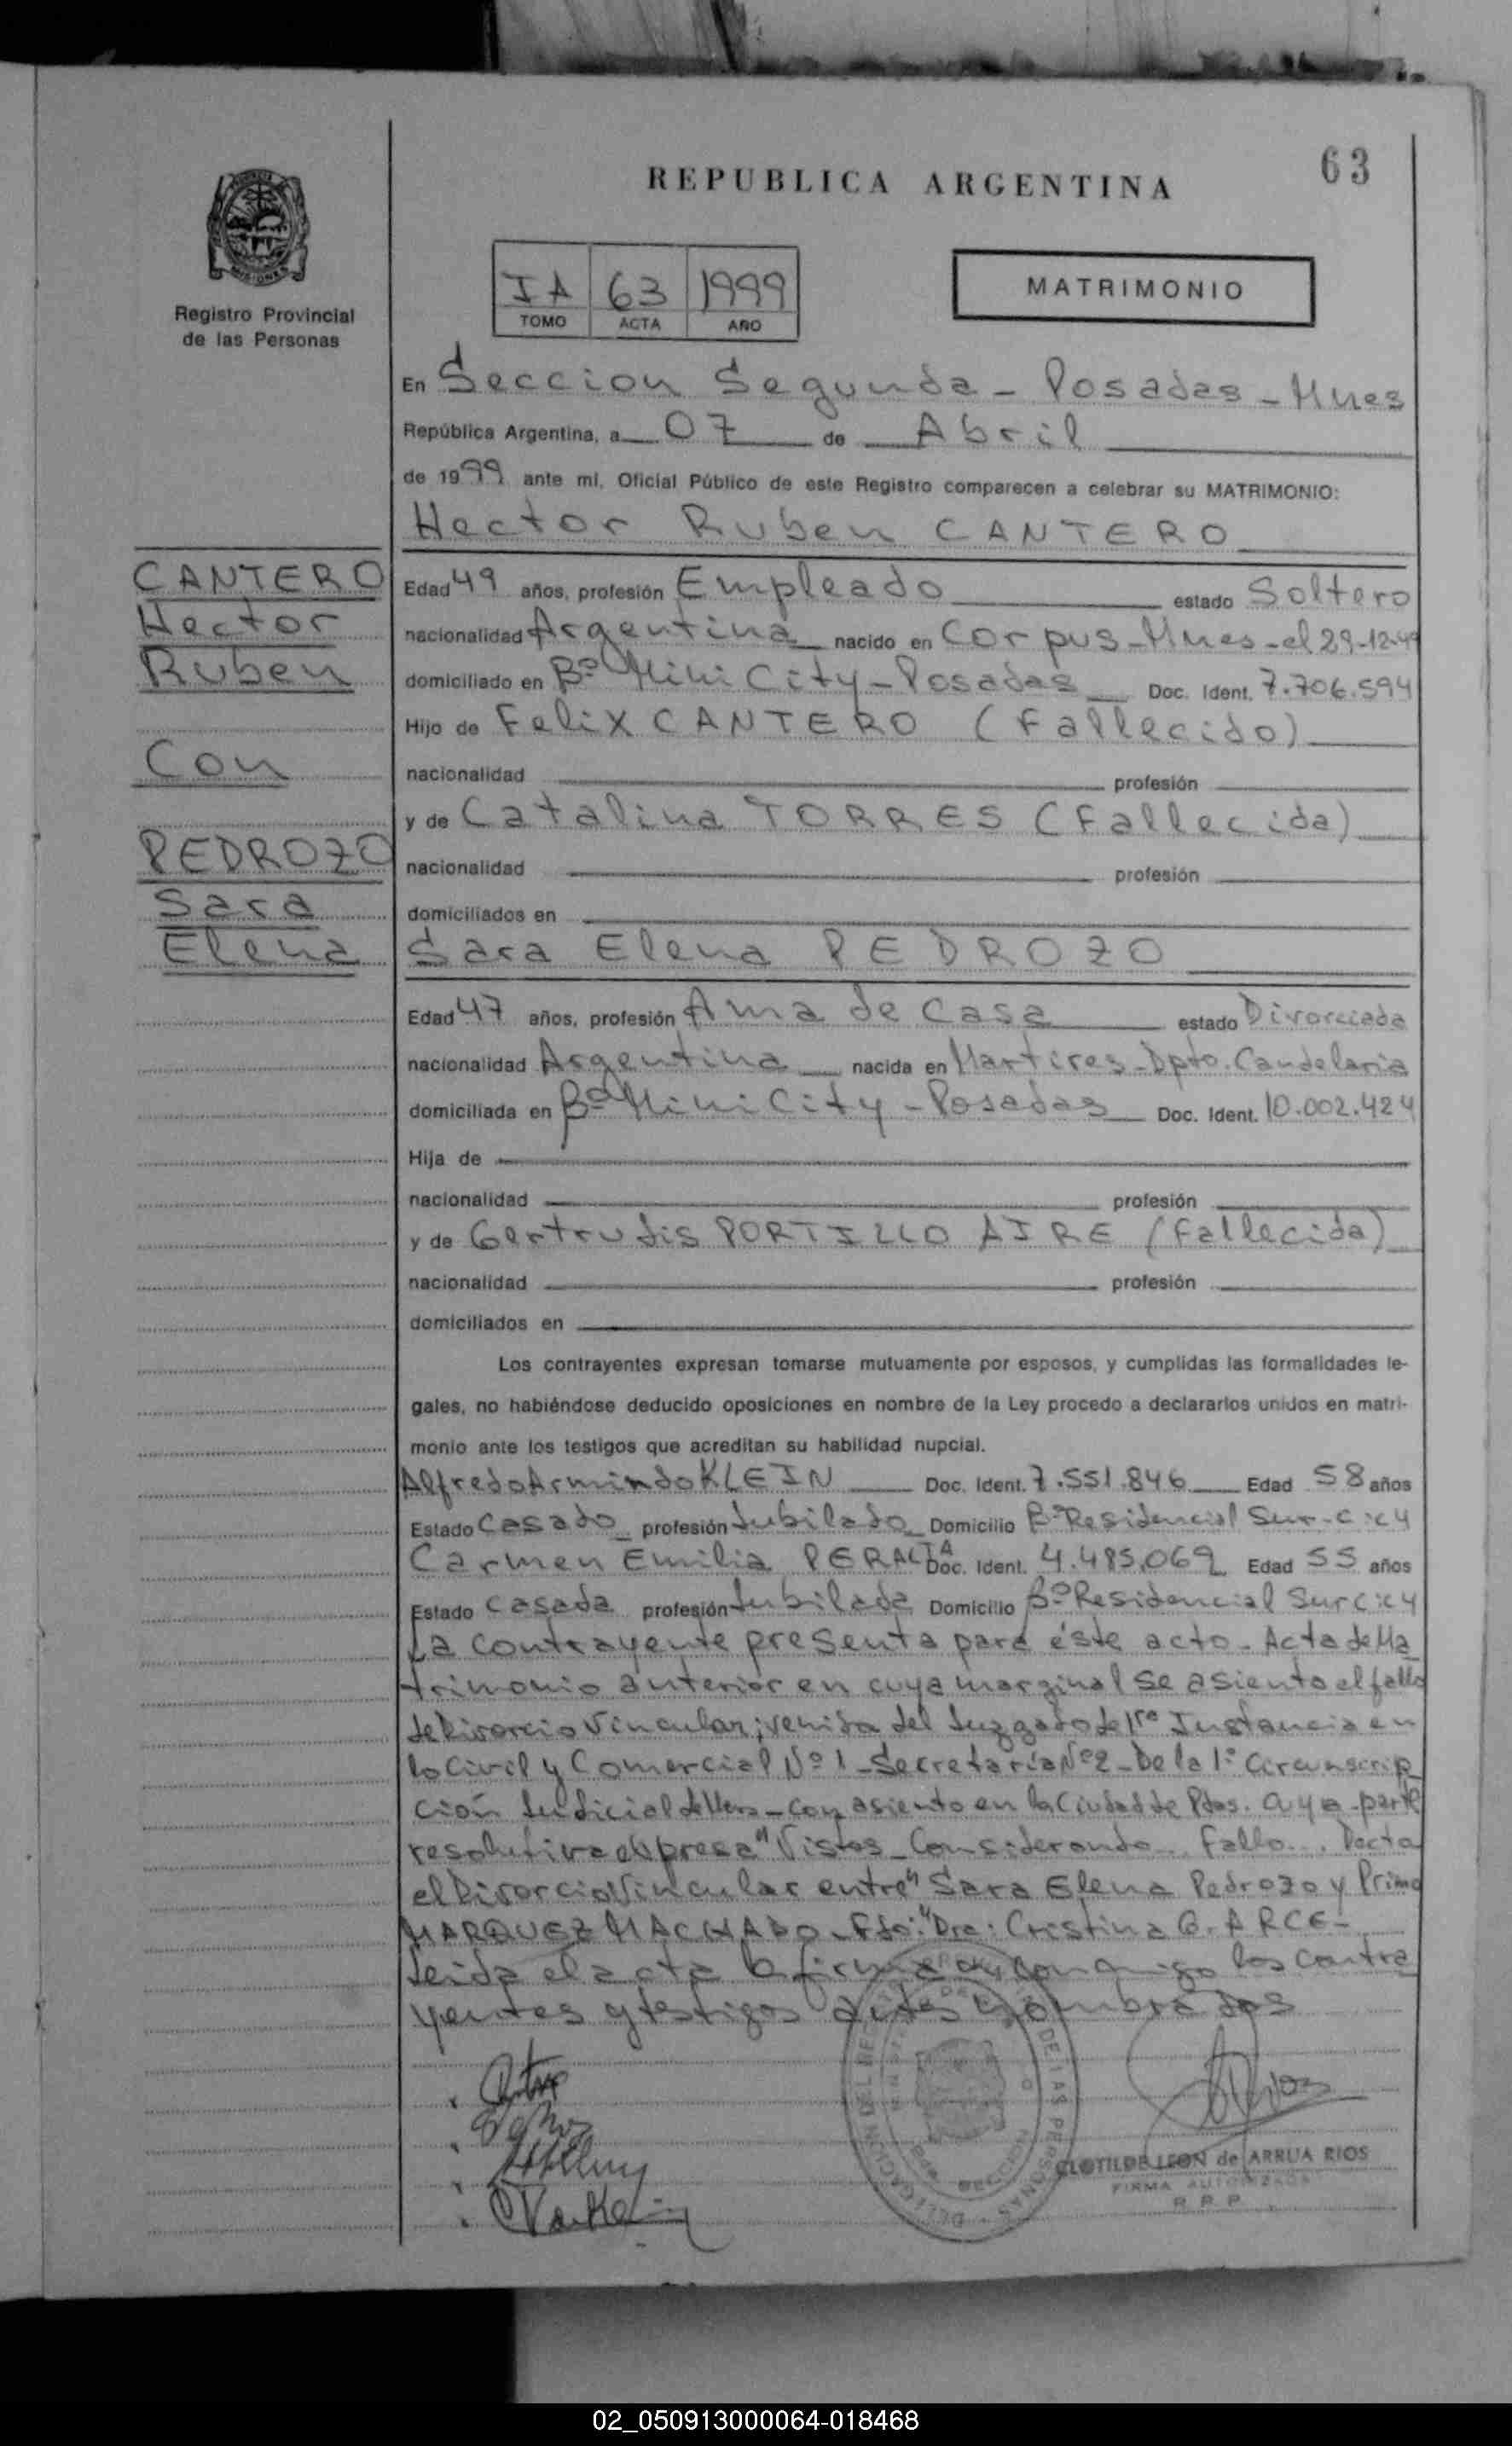 63
REPUBLICA ARGENTINA
MISIONES
Registro Provincial
de las Personas
IA 63 1999
TOMO ACTA AÑO
MATRIMONIO
En Seccion Segunda - Posadas - Mnes
República Argentina, a 07 de Abril
de 1999 ante mi, Oficial Público de este Registro comparecen a celebrar su MATRIMONIO:
Hector Ruben CANTERO
CANTERO
Hector
Ruben
Con
PEDROZO
Sara
Elena
Edad 49 años, profesión Empleado estado Soltero
nacionalidad Argentina nacido en Corpus - Mnes - el 29-12-49
domiciliado en Bº Mini City - Posadas Doc. Ident. 7.706.594
Hijo de Felix CANTERO (Fallecido)
nacionalidad profesión
y de Catalina TORRES (Fallecida)
nacionalidad profesión
domiciliados en
Sara Elena PEDROZO
Edad 47 años, profesión Ama de Casa estado Divorciada
nacionalidad Argentina nacida en Martires - Dpto. Candelaria
domiciliada en Bº Mini City - Posadas Doc. Ident. 10.002.424
Hija de
nacionalidad profesión
y de Gertrudis PORTILLO AIRE (Fallecida)
nacionalidad profesión
domiciliados en
Los contrayentes expresan tomarse mutuamente por esposos, y cumplidas las formalidades le-
gales, no habiéndose deducido oposiciones en nombre de la Ley procedo a declararlos unidos en matri-
monio ante los testigos que acreditan su habilidad nupcial.
Alfredo Armindo KLEIN Doc. Ident. 7.551.846 Edad 58 años
Estado Casado profesión Jubilado Domicilio Bº Residencial Sur - C:C4
Carmen Emilia PERALTA Doc. Ident. 4.485.069 Edad 55 años
Estado Casada profesión Jubilada Domicilio Bº Residencial Sur C:C4
La contrayente presenta para éste acto - Acta de Ma
trimonio anterior en cuya marginal se asienta el fallo
de Divorcio Vincular; venida del Juzgado de 1ra Instancia en
lo Civil y Comercial Nº 1 - Secretaría Nº 2 - De la 1º Circunscrip
ción Judicial de Mnes - con asiento en la Ciudad de Pdas. cuya parte
resolutiva expresa "Vistos - Considerando.. Fallo... Decta
el Divorcio Vincular entre" Sara Elena Pedrozo y Primo
MARQUEZ MACHADO - Fdo: "Dra: Cristina G. ARCE -
Leida el acta la firman conmigo los contra
yentes y testigos antes nombrados
CLOTILDE LEON de ARRUA RIOS
FIRMA AUTORIZADA
R. P. P.
02_050913000064-018468